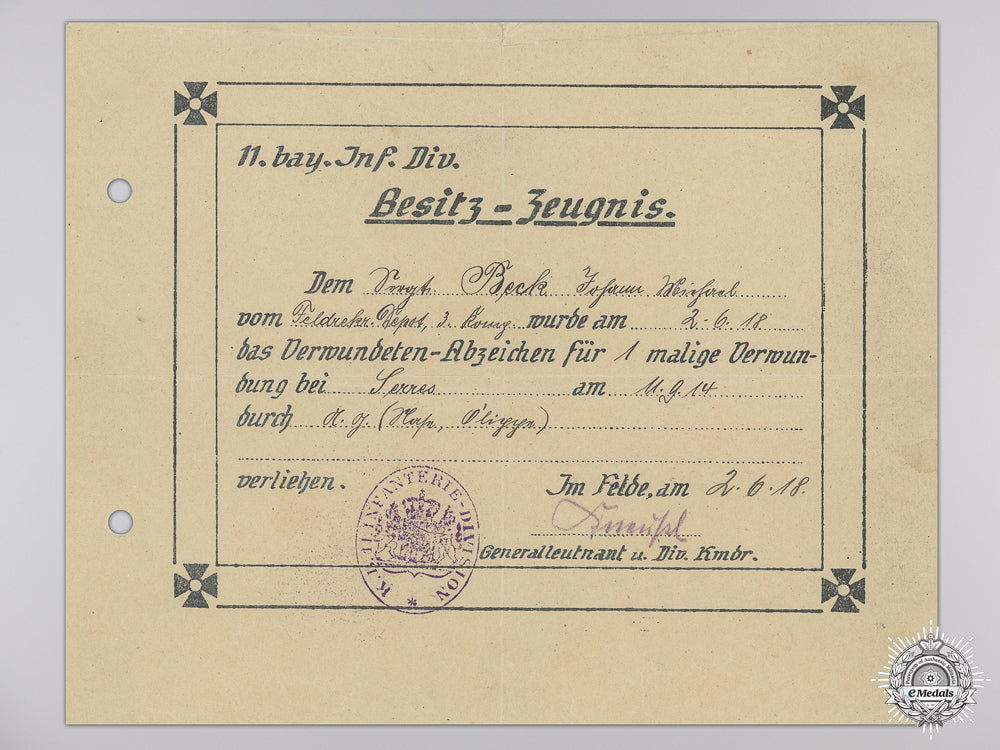 11. bay. Inf. Div.
Besitz-Zeugnis.
Dem Sergt. Beck Johann Michael
vom Feldrekr. Depot, 3. Komp. wurde am 2-6.18.
das Verwundeten-Abzeichen für 1 malige Verwun-
dung bei Serres am 11.9.14
durch A.G. (Nase, Oberlippe)
verliehen. Im Felde, am 2.6.18.
Kneußl
Generalleutnant u. Div. Kmdr.
K.B. 11. INFANTERIE-DIVISION *
Purveyors of Authentic Militaria
eMedals